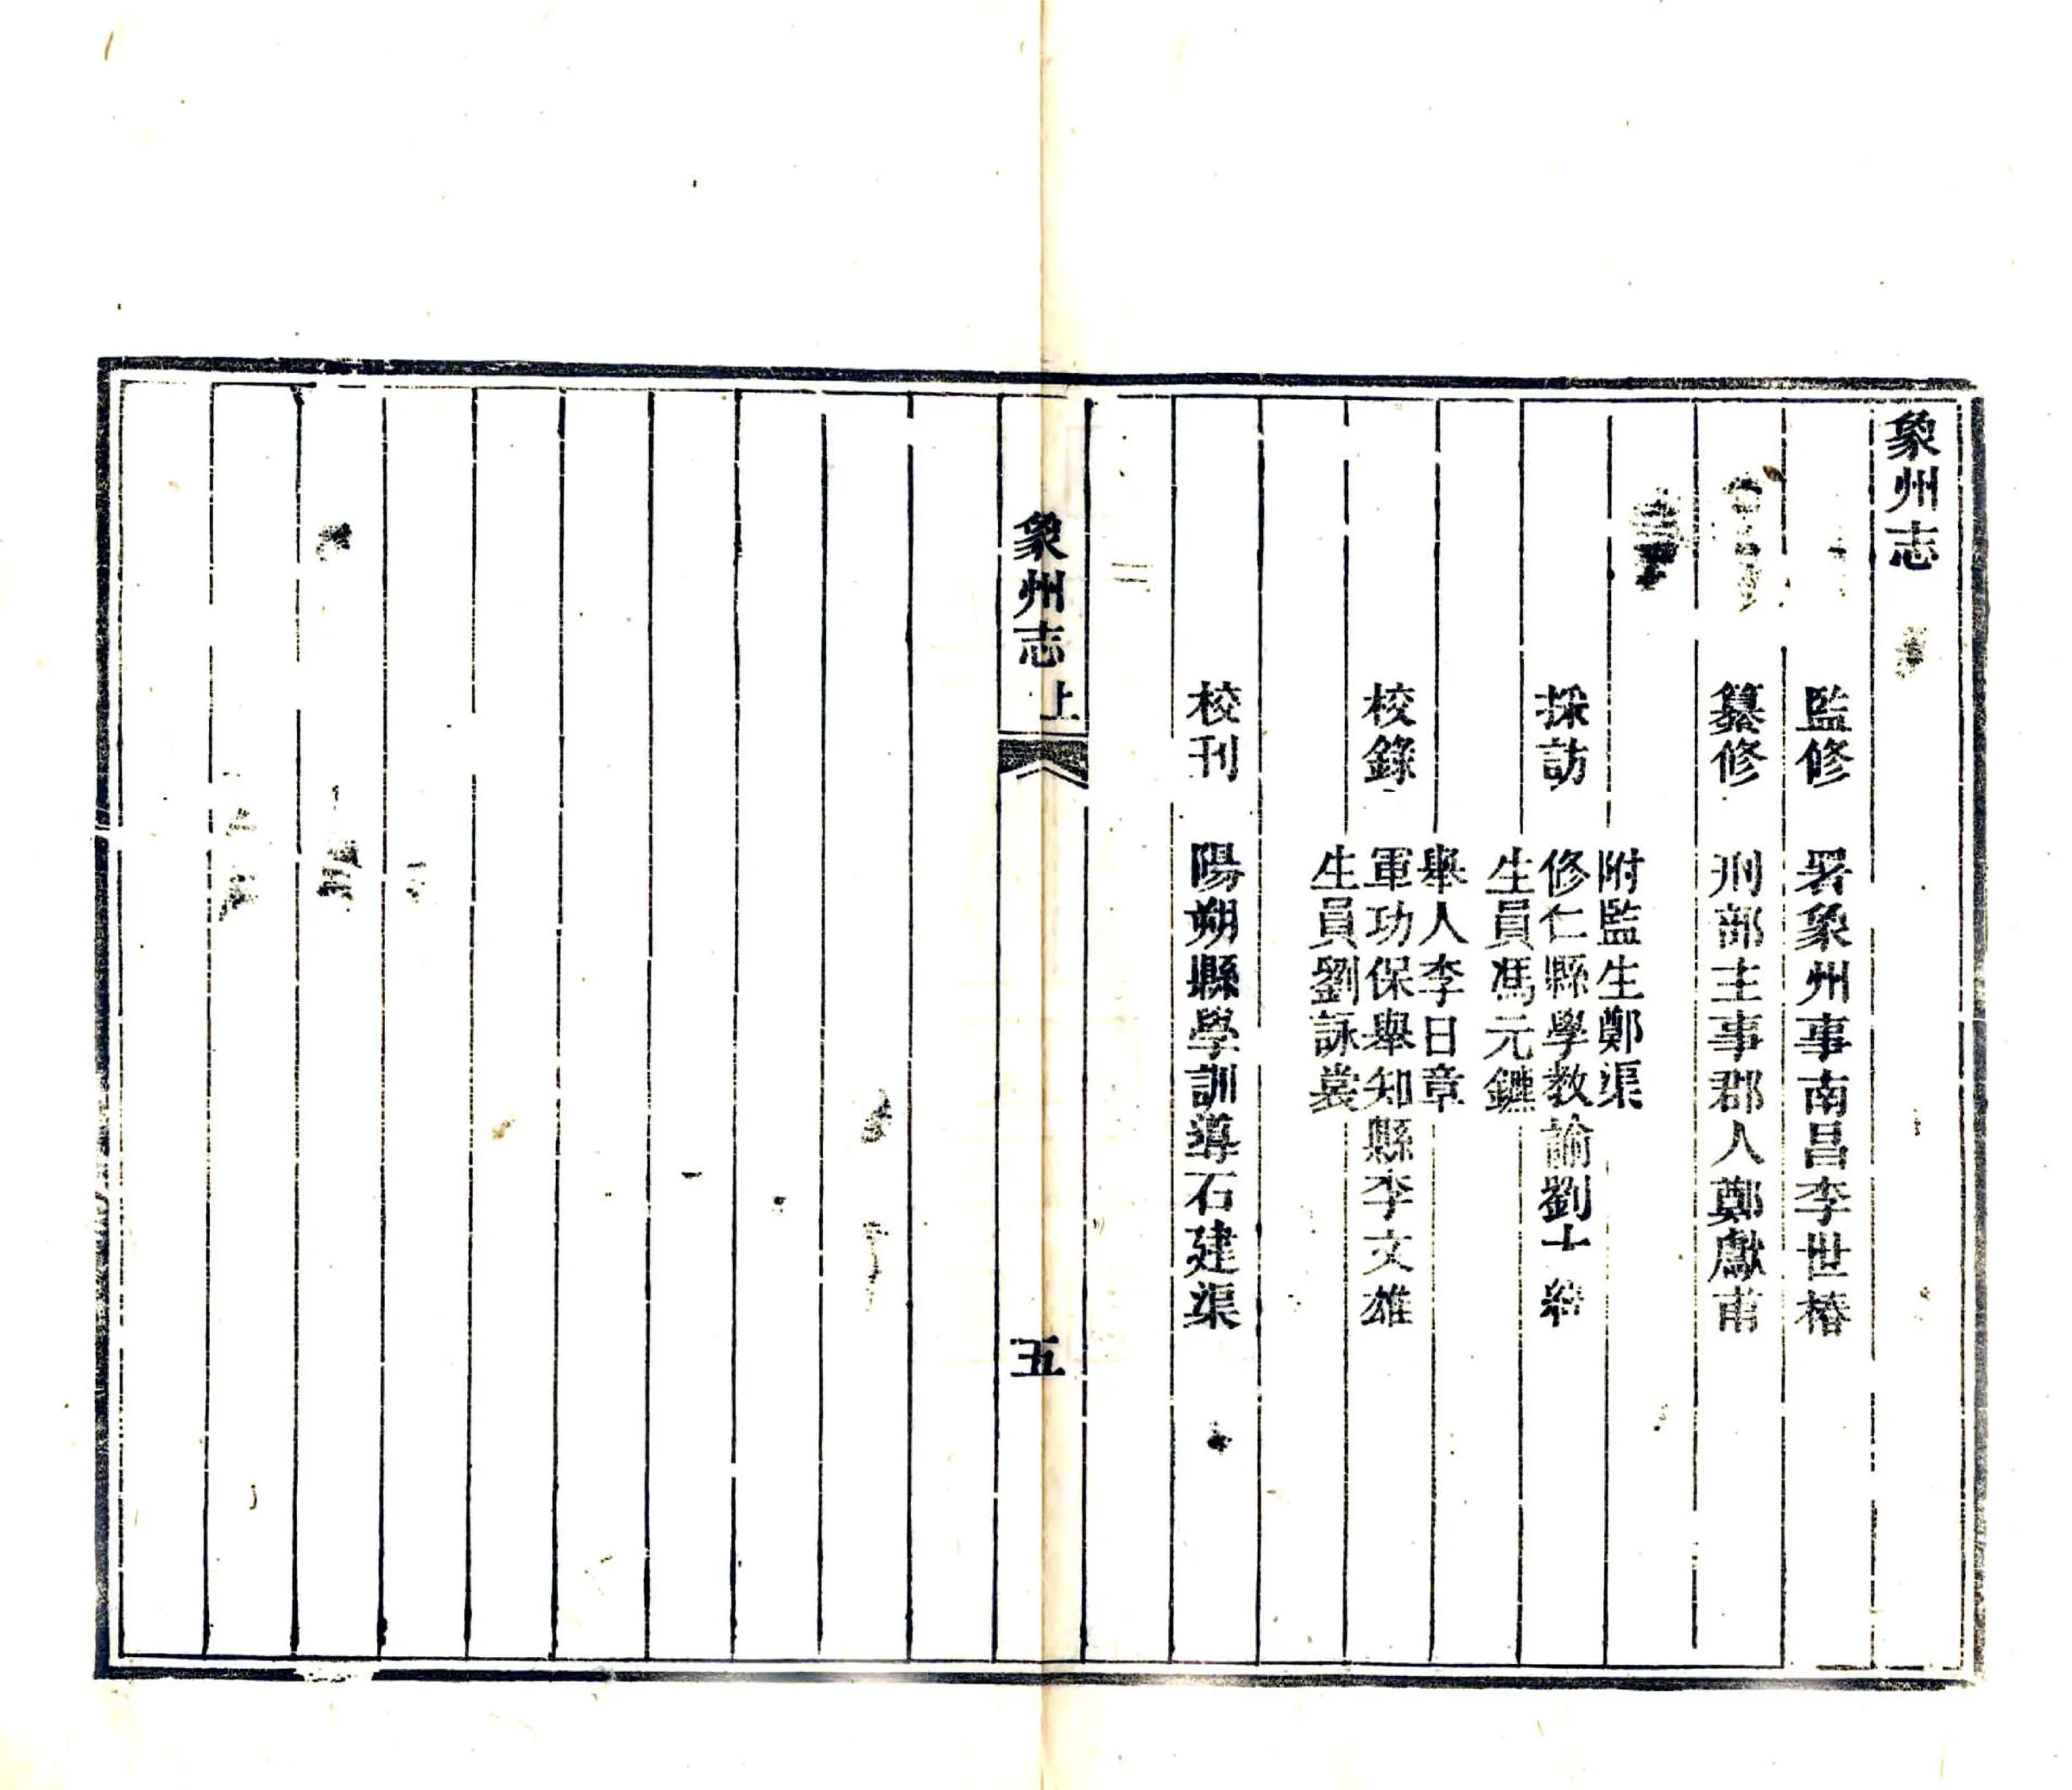 象州志
監修　署象州事南昌李世椿
纂修　刑部主事郡人鄭獻甫
附監生鄭渠
採訪　修仁縣學教諭劉士
生員馮元鑣
舉人李日章
校錄　軍功保舉知縣李文雄
生員劉詠裳
校刊　陽朔縣學訓導石建渠
象州志　上　五